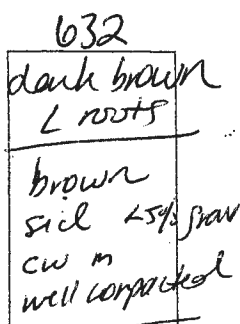 632
dark brown
L roots
brown
sicl <5% grav
cw m
well compacted